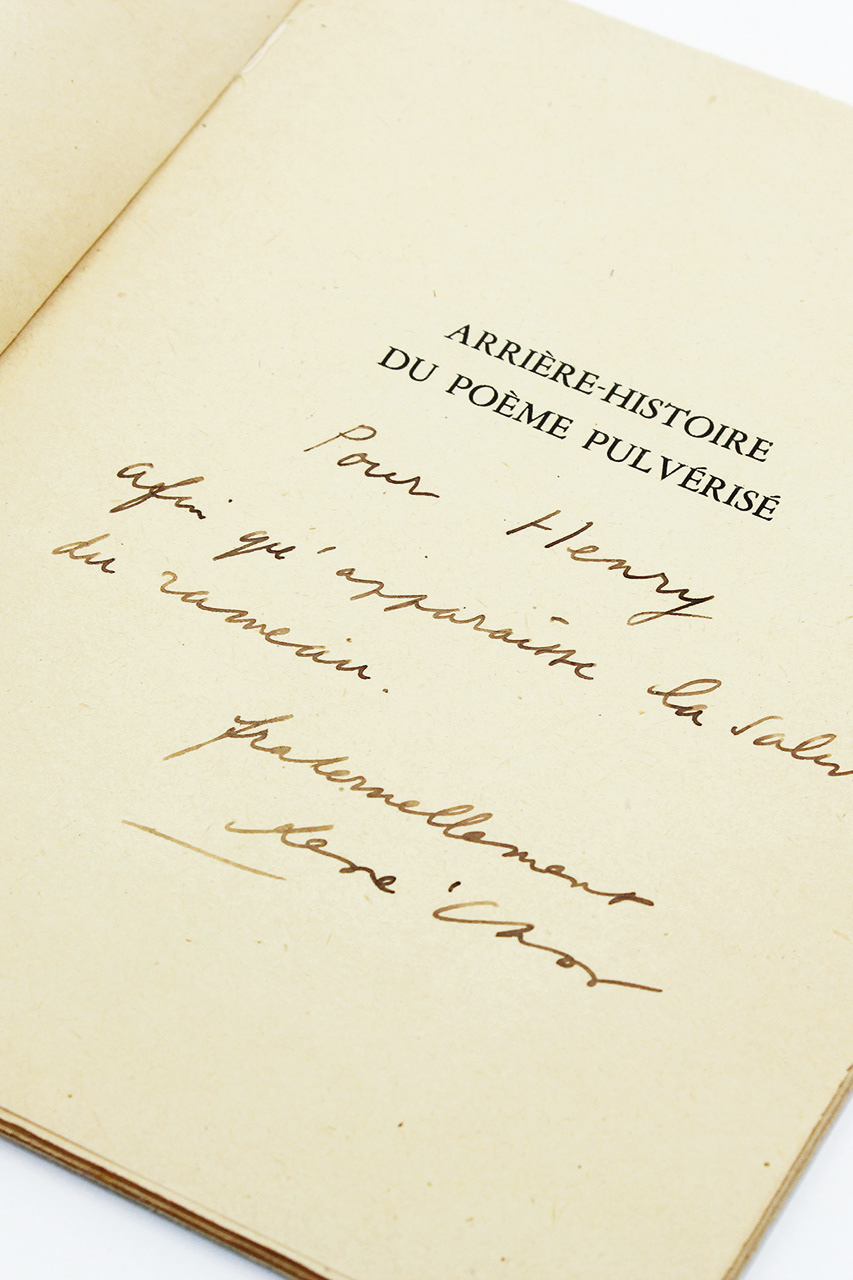 ARRIÈRE-HISTOIRE
DU POÈME PULVÉRISÉ
Pour Henry
afin qu'apparaîsse la
du rameau.
fraternellement
René Char